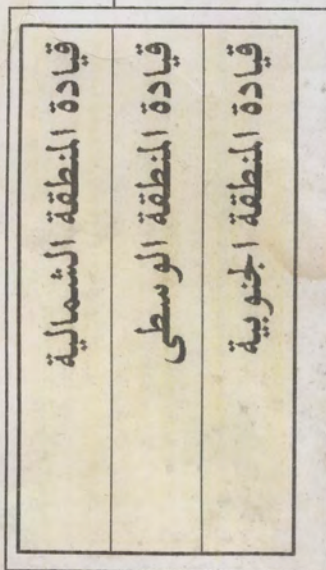 قيادة المنطقة الشمالية
قيادة المنطقة الوسطى
قيادة المنطقة الجنوبية